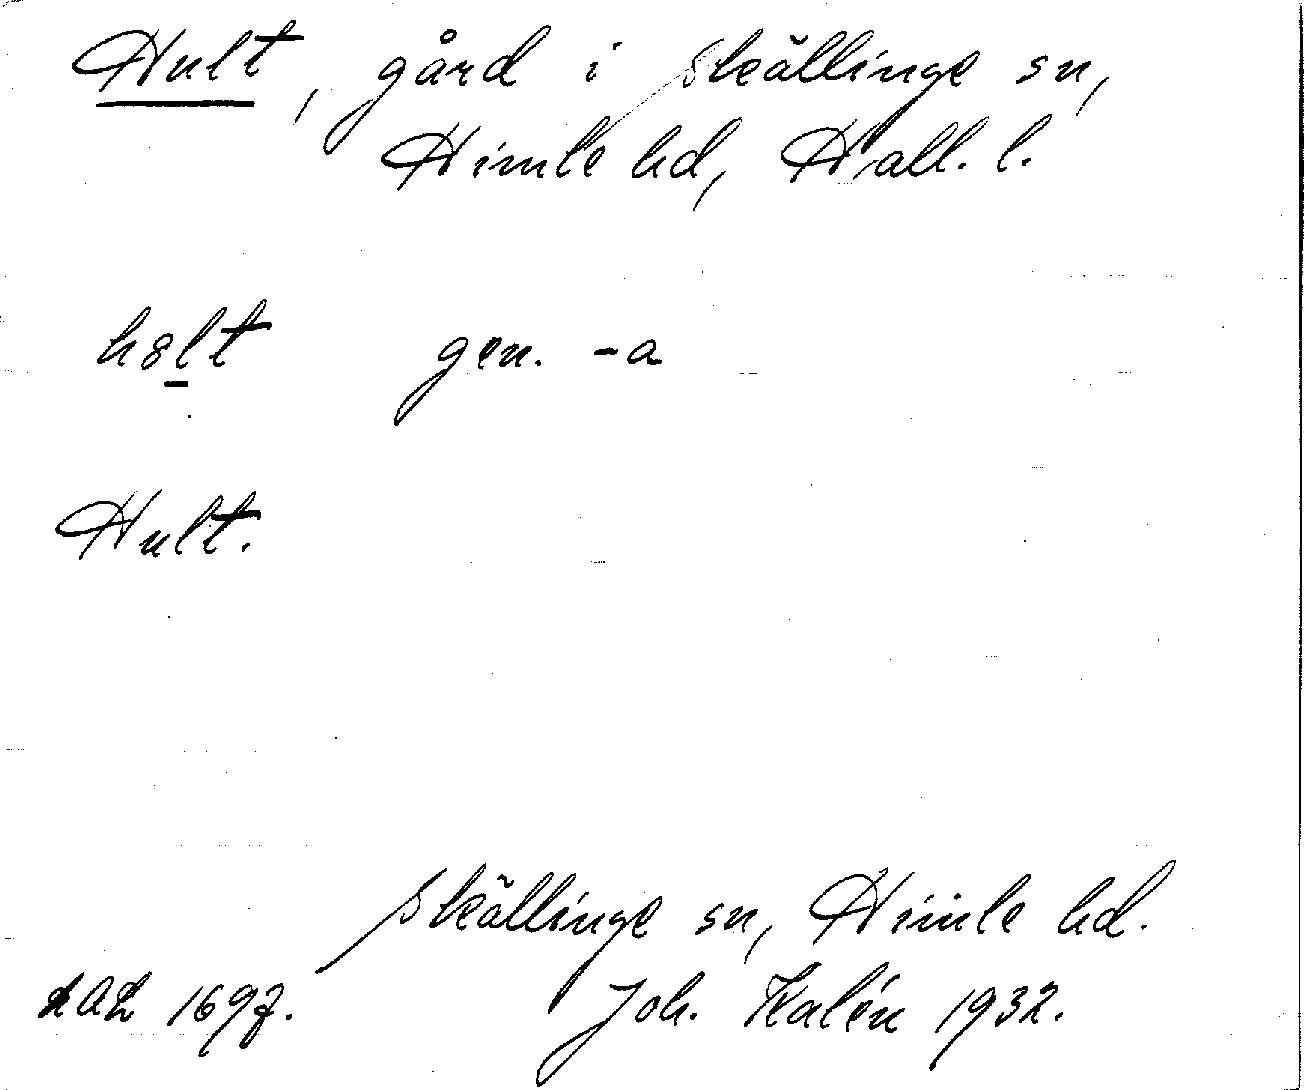 Hult, gård i Skällinge sn,
Himle hd, Hall. l.
hɞl̠t gen. -a
Hult.
Skällinge sn, Himle hd.
1697. Joh. Kalén 1932.